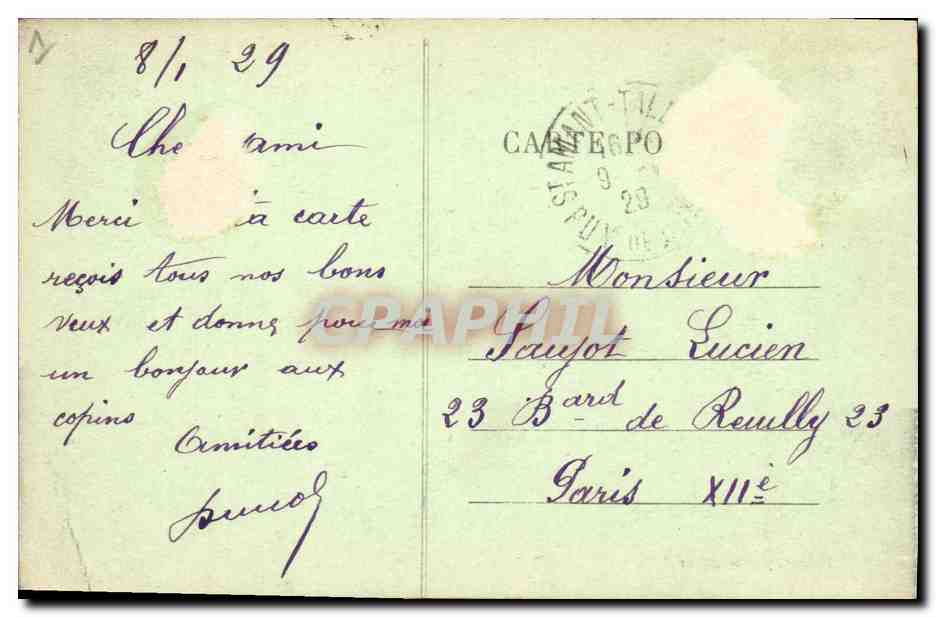 8/1 29
Che ami
Merci à carte
reçois tous nos bons
veux et donne pour moi
un bonjour aux
copins
Amitiées
CARTE PO
ST AMANT-TALL
16
9
29
PUY DE
Monsieur
Saujot Lucien
23 Bard de Reuilly 23
Paris XIIè
CPAPHIL